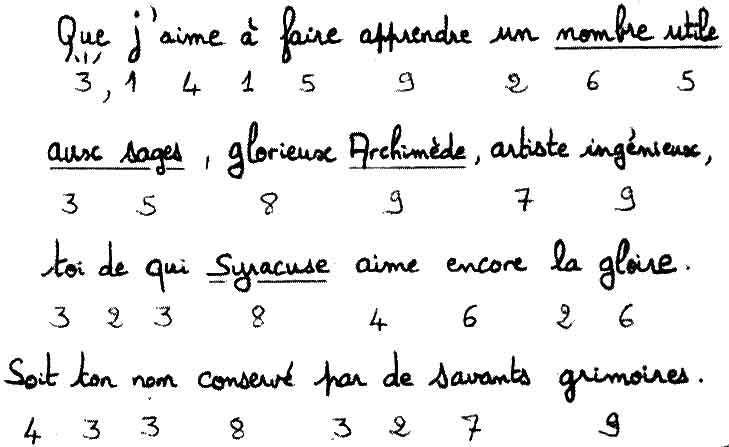 Que j'aime à faire apprendre un nombre utile
3, 1 4 1 5 9 2 6 5
aux sages, glorieux Archimède, artiste ingénieux,
3 5 8 9 7 9
toi de qui Syracuse aime encore la gloire.
3 2 3 8 4 6 2 6
Soit ton nom conservé par de savants grimoires.
4 3 3 8 3 2 7 9